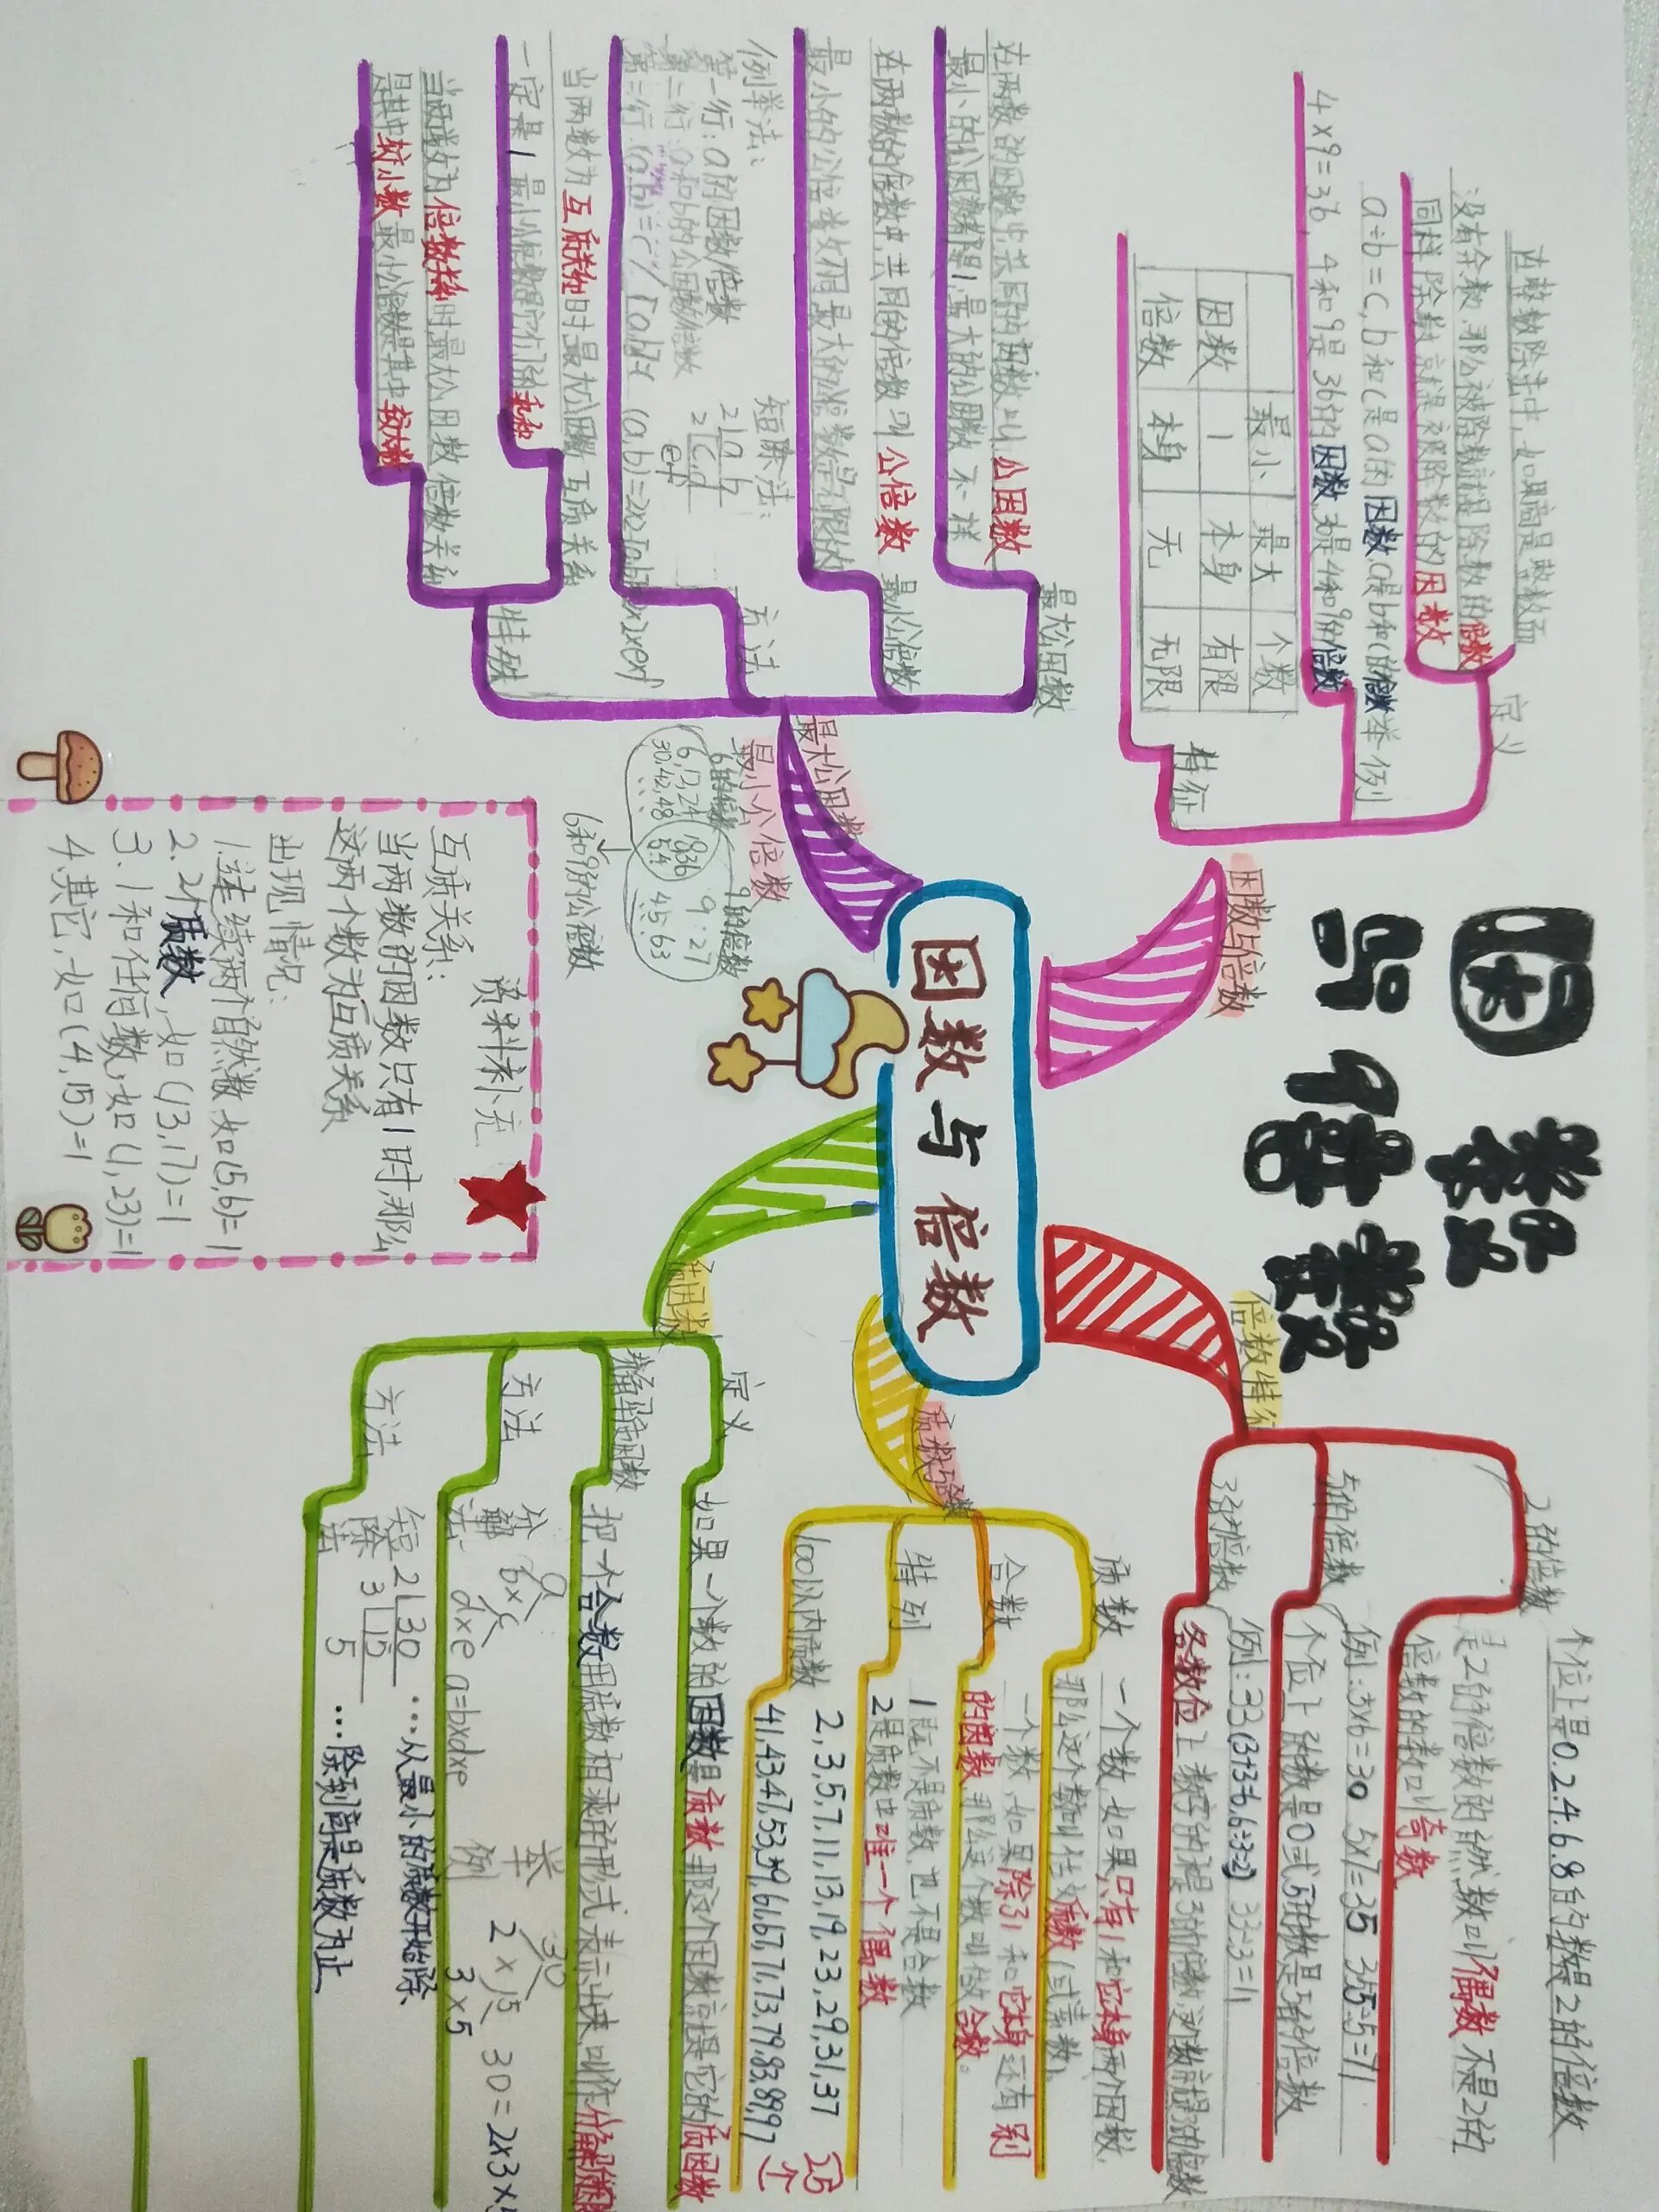 因数
与倍数
因数与倍数
因数与倍数
定义
在整数除法中,如果商是整数而
没有余数,那么被除数就是除数的倍数
同样除数就是被除数的因数
举例
a÷b=c,b和c是a的因数,a是b和c的倍数
4×9=36,4和9是36的因数,36是4和9的倍数
特征
最小 最大 个数
因数 1 本身 有限
倍数 本身 无 无限
最大公因数
最小公倍数
最大公因数
在两数的因数中,共同的因数叫公因数
最小的公因数都是1,最大的公因数不一样
最小公倍数
在两数的倍数中,共同的倍数叫公倍数
方法
例举法:
第一行:a的因数/倍数
第二行:a和b的公因数/倍数
短除法:
2|a b
2|c,d
e f
特殊
当两数为互质关系时,最大公因数
一定是1
互质关系
当两数为倍数关系时,最大公因数
是其中较小数,最小公倍数是其中较大数
倍数关系
6的倍数
9的倍数
6,12,24
30,42,48
18,36
54
9,27
45,63
6和9的公倍数
资料补充
互质关系:
当两数的因数只有1时,那么
这两个数为互质关系
出现情况:
1.连续两个自然数,如(5,6)=1
2.2个质数,如(13,17)=1
3.1和任何数,如(1,23)=1
4.其它,如(4,15)=1
倍数特征
2的倍数
个位上是0.2.4.6.8的数是2的倍数
是2的倍数的自然数叫偶数 不是2的
倍数的数叫奇数
5的倍数
例:5×6=30 5×7=35 35÷5=7
个位上的数是0或5的数是5的倍数
3的倍数
例:33(3+3=6,6÷3=2) 33÷3=11
各数位上数字的和是3的倍数,这个数就是3的倍数
质数与合数
质数
一个数,如果只有1和它本身两个因数,
那么这个数叫作质数(或素数)
合数
一个数,如果除了1和它本身还有别
的因数,那么这个数叫做合数。
特列
1既不是质数,也不是合数
2是质数中唯一一个偶数
100以内质数
2,3,5,7,11,13,19,23,29,31,37
41,43,47,53,59,61,67,71,73,79,83,89,97
25个
质因数
定义
如果一个数的因数是质数,那这个因数就是它的质因数
分解质因数
把一个合数用质数相乘的形式表示出来,叫作分解质因数
方法
分解法
a
b×c
d×e
a=b×d×e
举例
30
2×15
3×5
30=2×3×5
方法
短除法
2|30
3|15
5
…从最小的质数开始除
…除到商是质数为止